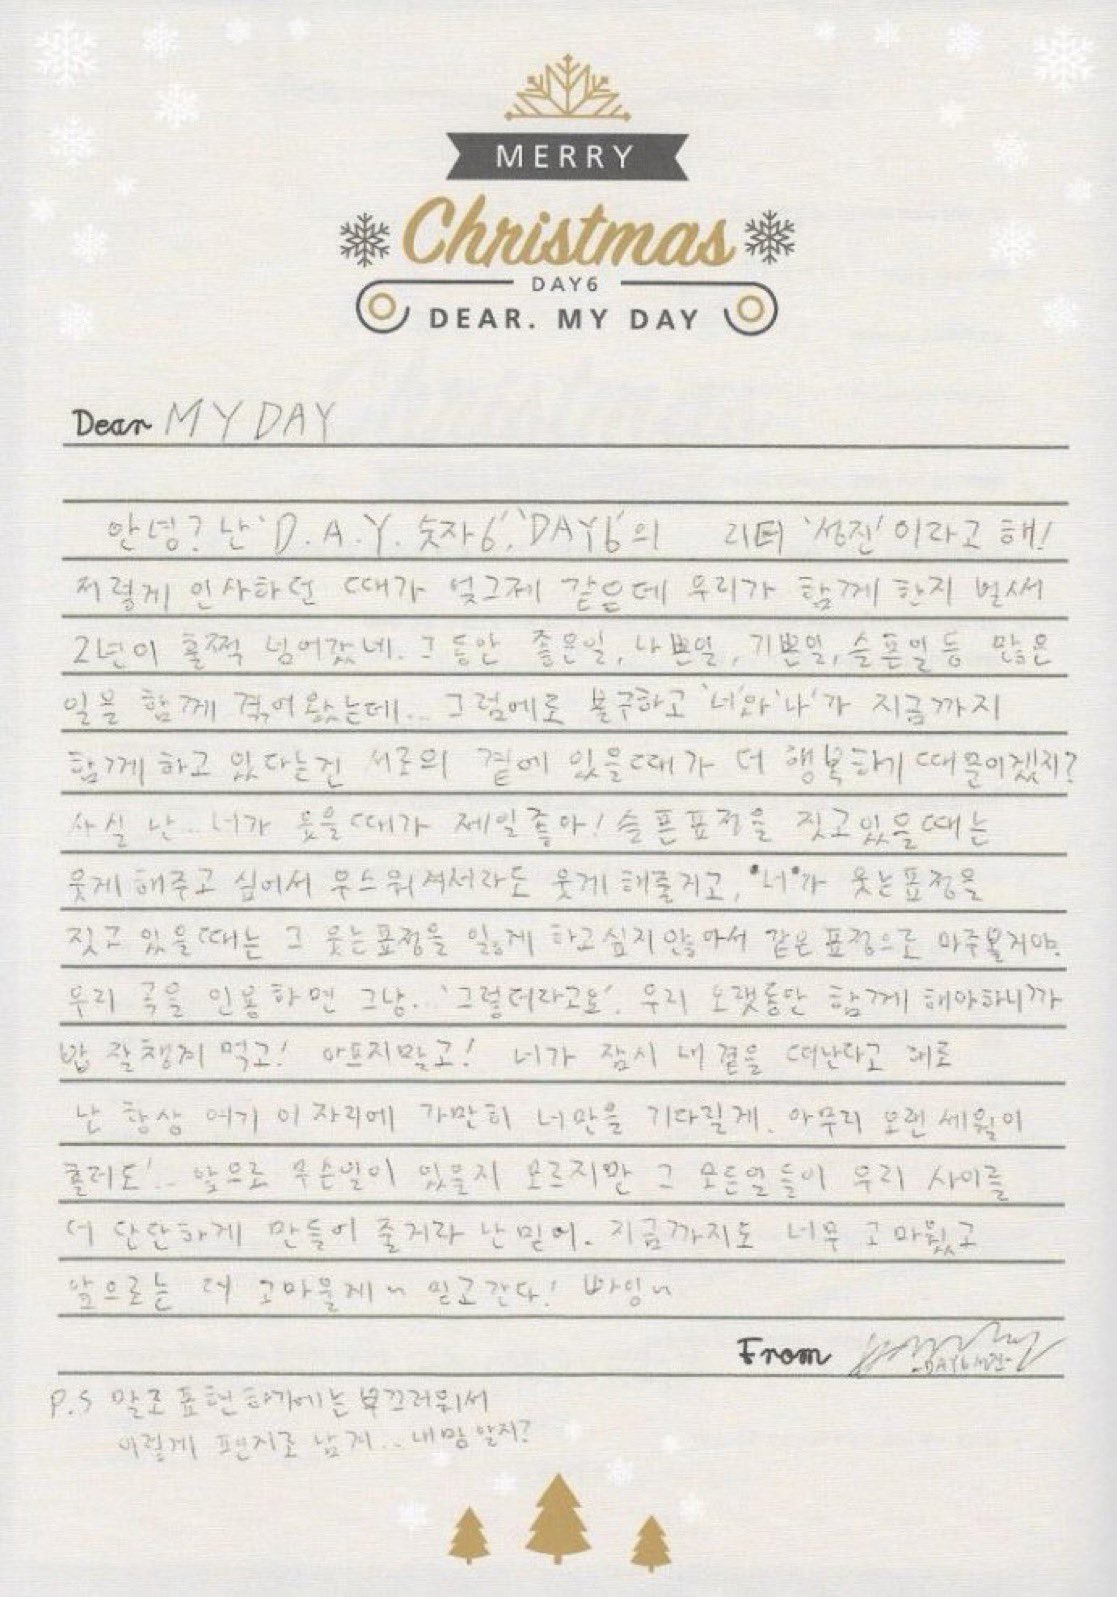 MERRY
Christmas
DAY6
DEAR. MY DAY
Dear MY DAY
안녕? 난 'D.A.Y. 숫자6', 'DAY6'의 리더 '성진'이라고 해!
저렇게 인사하던 때가 엊그제 같은데 우리가 함께 한지 벌써
2년이 훌쩍 넘어갔네. 그 동안 좋은일, 나쁜일, 기쁜일, 슬픈일 등 많은
일을 함께 겪어왔는데... 그럼에도 불구하고 '너'와 '나'가 지금까지
함께 하고 있다는건 서로의 곁에 있을때가 더 행복하기 때문이겠지?
사실 난.. 너가 웃을때가 제일좋아! 슬픈표정을 짓고있을때는
웃게 해주고 싶어서 우스워져서라도 웃게 해줄거고, "너"가 웃는표정을
짓고 있을때는 그 웃는표정을 잃게 하고싶지않아서 같은표정으로 마주볼거야.
우리 곡을 인용하면 그냥.. '그렇더라고요'. 우리 오랫동안 함께 해야하니까
밥 잘챙겨 먹고! 아프지말고! 너가 잠시 내 곁을 떠난다고 해도
난 항상 여기 이 자리에 가만히 너만을 기다릴게. 아무리 오랜 세월이
흘러도!.. 앞으로 무슨일이 있을지 모르지만 그 모든일들이 우리 사이를
더 단단하게 만들어 줄거라 난믿어. 지금까지도 너무 고마웠고
앞으로는 더 고마울게~ 믿고간다! 빠잉~
From
-DAY6 성진-
P.S 말로 표현하기에는 부끄러워서
이렇게 편지로 남겨.. 내맘알지?